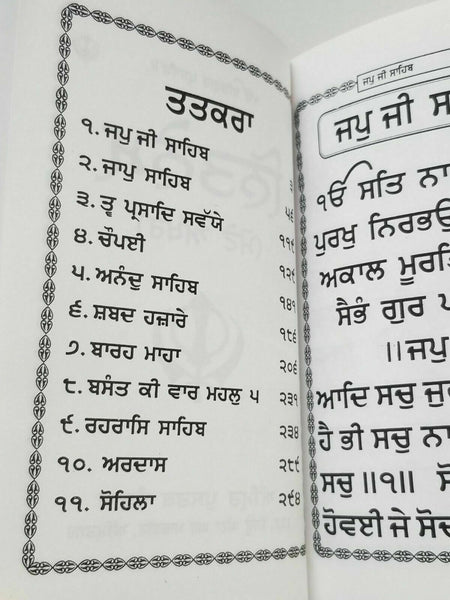 ਤਤਕਰਾ
੧. ਜਪੁ ਜੀ ਸਾਹਿਬ ੩
੨. ਜਾਪੁ ਸਾਹਿਬ ੫੬
੩. ਤ੍ਵ ਪ੍ਰਸਾਦਿ ਸਵੱਯੇ ੧੧੬
੪. ਚੌਪਈ ੧੨੬
੫. ਅਨੰਦੁ ਸਾਹਿਬ ੧੪੧
੬. ਸ਼ਬਦ ਹਜ਼ਾਰੇ ੧੮੬
੭. ਬਾਰਹ ਮਾਹਾ ੨੦੬
੮. ਬਸੰਤ ਕੀ ਵਾਰ ਮਹਲੁ ੫ ੨੩੧
੯. ਰਹਰਾਸਿ ਸਾਹਿਬ ੨੩੪
੧੦. ਅਰਦਾਸ ੨੮੯
੧੧. ਸੋਹਿਲਾ ੨੯੪
ਜਪੁ ਜੀ ਸਾਹਿਬ
ਜਪੁ ਜੀ ਸ
ੴ ਸਤਿ ਨਾ
ਪੁਰਖੁ ਨਿਰਭਉ
ਅਕਾਲ ਮੂਰਤਿ
ਸੈਭੰ ਗੁਰ ਪ
॥ਜਪੁ
ਆਦਿ ਸਚੁ ਜੁ
ਹੈ ਭੀ ਸਚੁ ਨਾ
ਸਚੁ ॥੧॥ ਸੋ
ਹੋਵਈ ਜੇ ਸੋਚ